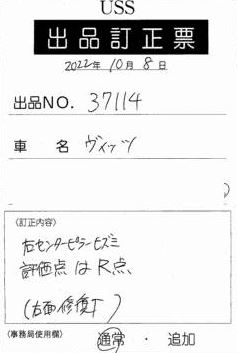 USS
出品訂正票
2022年10月8日
出品NO. 37114
車名 ヴィッツ
〈訂正内容〉
右センターピラーヒズミ
評価点はR点
(右面修復有)
〈事務局使用欄〉 通常 ・ 追加